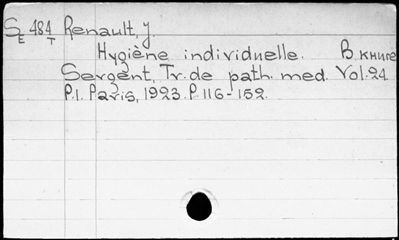 S E 484 T Renault, J.
Hygiène individuelle. В книге
Sergent, Tr. de path. med. Vol. 24
P. 1. Paris, 1923. P. 116-152.